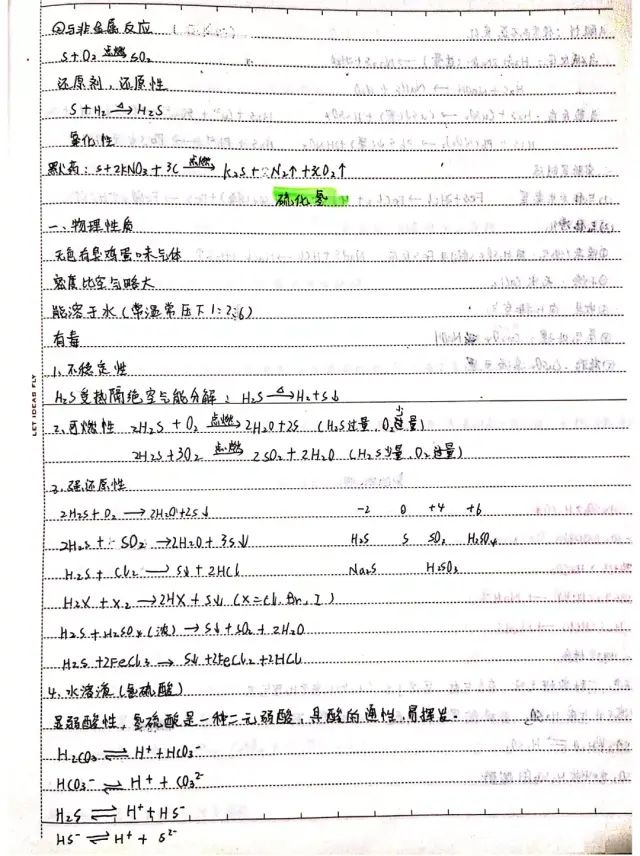 ②与非金属反应
S+O₂ 点燃 SO₂
还原剂，还原性
S+H₂ △→ H₂S
氧化性
黑火药：S+2KNO₃+3C 点燃→ K₂S+N₂↑+3CO₂↑
硫化氢
一、物理性质
无色有臭鸡蛋味气体
密度比空气略大
能溶于水(常温常压下1:2.6)
有毒
1、不稳定性
H₂S受热隔绝空气能分解：H₂S △→ H₂+S↓
2、可燃性 2H₂S+O₂ 点燃→ 2H₂O+2S (H₂S过量，O₂少量)
2H₂S+3O₂ 点燃 2SO₂+2H₂O (H₂S少量，O₂过量)
3、强还原性
2H₂S+O₂→2H₂O+2S↓ -2 0 +4 +6
2H₂S+SO₂→2H₂O+3S↓ H₂S S SO₂ H₂SO₄
H₂S+Cl₂→S↓+2HCl Na₂S H₂SO₃
H₂X+X₂→2HX+S↓(X=Cl、Br、I)
H₂S+H₂SO₄(浓)→S↓+SO₂+2H₂O
H₂S+2FeCl₃→S↓+2FeCl₂+2HCl
4、水溶液(氢硫酸)
显弱酸性，氢硫酸是一种二元弱酸，具酸的通性，易挥发。
H₂CO₃⇌H⁺+HCO₃⁻
HCO₃⁻⇌H⁺+CO₃²⁻
H₂S⇌H⁺+HS⁻
HS⁻⇌H⁺+S²⁻
LET IDEAS FLY